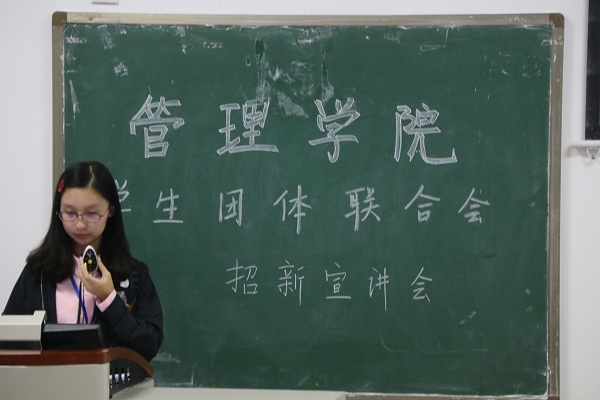 管理学院
学生团体联合会
招新宣讲会